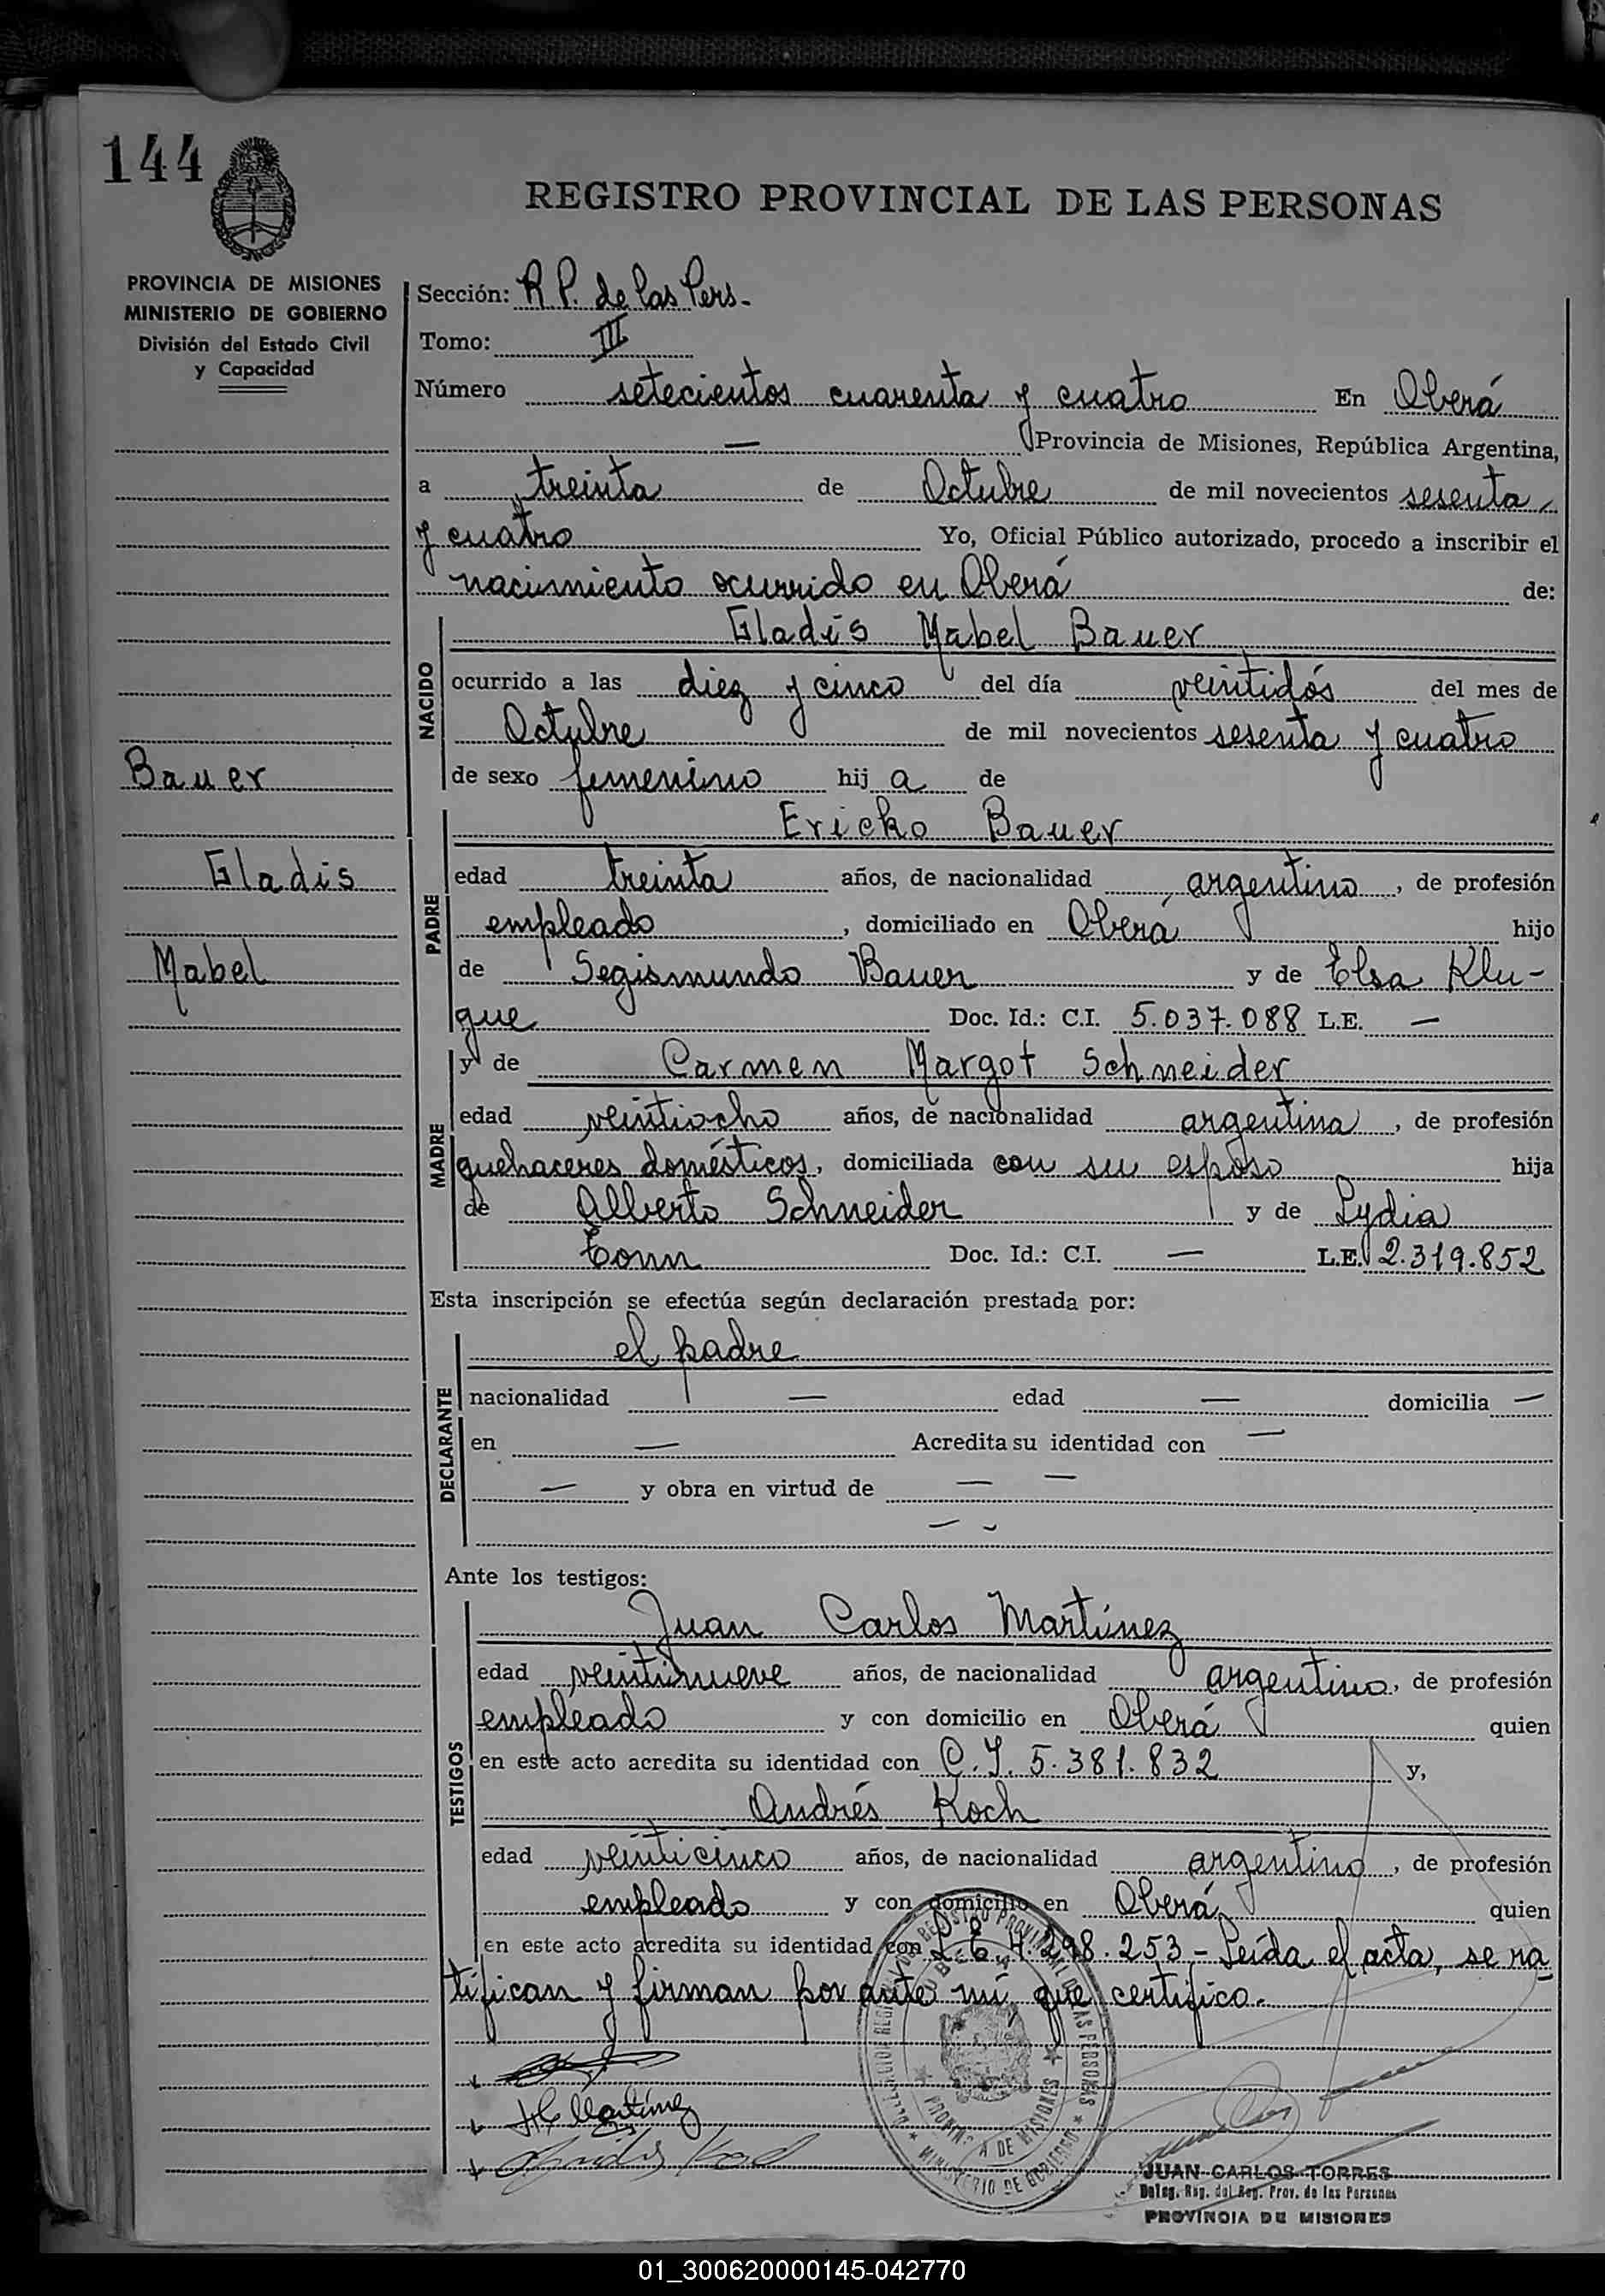 144
REGISTRO PROVINCIAL DE LAS PERSONAS
PROVINCIA DE MISIONES
MINISTERIO DE GOBIERNO
División del Estado Civil
y Capacidad
Sección: R P. de las Pers.
Tomo: III
Número setecientos cuarenta y cuatro En Oberá
— Provincia de Misiones, República Argentina,
a treinta de Octubre de mil novecientos sesenta
y cuatro Yo, Oficial Público autorizado, procedo a inscribir el
nacimiento ocurrido en Oberá de:
Gladis Mabel Bauer
NACIDO
ocurrido a las diez y cinco del día veintidós del mes de
Octubre de mil novecientos sesenta y cuatro
de sexo femenino hij a de
Bauer
Gladis
Mabel
Ericko Bauer
PADRE
edad treinta años, de nacionalidad argentino, de profesión
empleado, domiciliado en Oberá hijo
de Segismundo Bauer y de Elsa Klu-
gue Doc. Id.: C.I. 5.037.088 L.E. —
y de Carmen Margot Schneider
MADRE
edad veintiocho años, de nacionalidad argentina, de profesión
quehaceres domésticos, domiciliada con su esposo hija
de Alberto Schneider y de Lydia
Tonn Doc. Id.: C.I. — L.E. 2.319.852
Esta inscripción se efectúa según declaración prestada por:
el padre
DECLARANTE
nacionalidad — edad — domicilia —
en — Acredita su identidad con —
— y obra en virtud de — —
— -
Ante los testigos:
Juan Carlos Martínez
TESTIGOS
edad veintinueve años, de nacionalidad argentino, de profesión
empleado y con domicilio en Oberá quien
en este acto acredita su identidad con C.I. 5.381.832 y,
Andrés Koch
edad veinticinco años, de nacionalidad argentino, de profesión
empleado y con domicilio en Oberá quien
en este acto acredita su identidad con L.E. 4.298.253 - Leída el acta, se ra
tifican y firman por ante mí que certifico.
JC Martínez
Andrés Koch
PROVINCIA DE MISIONES
MINISTERIO DE GOBIERNO
JUAN CARLOS TORRES
Deleg. Reg. del Reg. Prov. de las Personas
PROVINCIA DE MISIONES
01_300620000145-042770